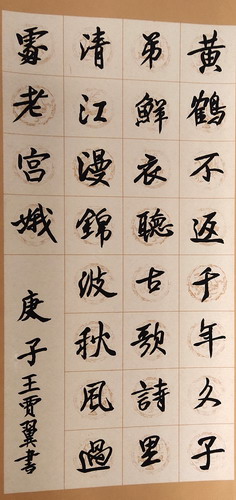 黄鶴不返千年久子
弟鮮衣聽古歌詩里
清江漫錦波秋風過
處老宮娥
庚子王賈翼書